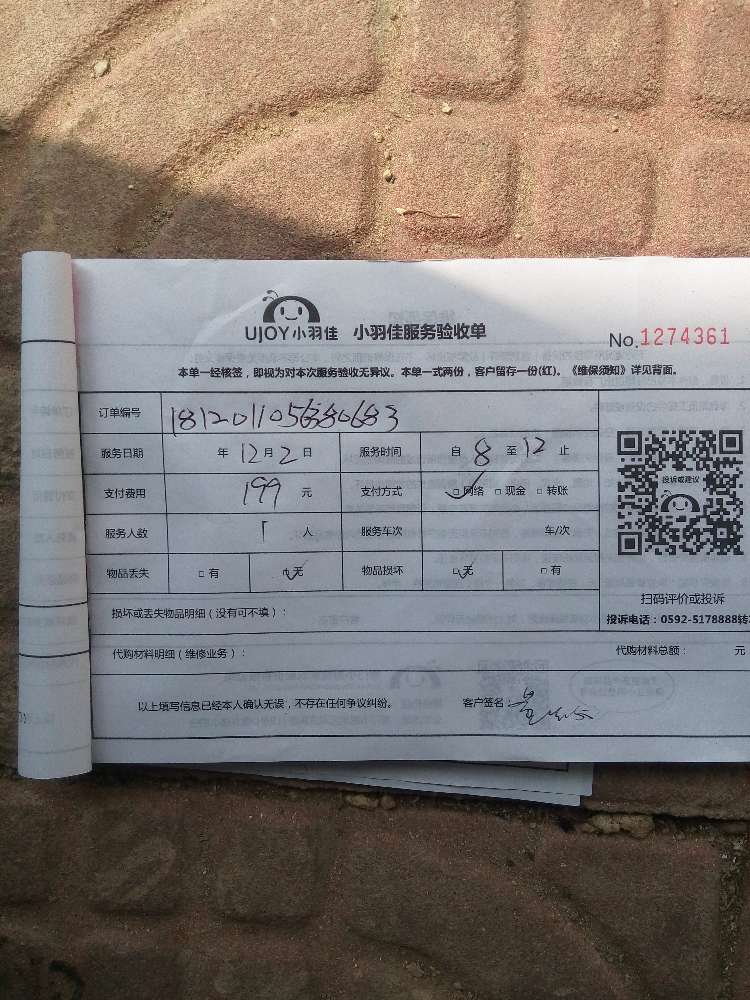 UJOY小羽佳 小羽佳服务验收单
No.1274361
本单一经核签，即视为对本次服务验收无异议。本单一式两份，客户留存一份(红)。《维保须知》详见背面。
订单编号
服务日期 年 12月2日 服务时间 自 8 至 12 止
支付费用 199 元 支付方式 □网络 □现金 □转账
服务人数 1 人 服务车次 车/次
物品丢失 □有 □无 物品损坏 □无 □有
投诉或建议
扫码评价或投诉
损坏或丢失物品明细（没有可不填）：
投诉电话：0592-5178888转
代购材料明细（维修业务）： 代购材料总额： 元
以上填写信息已经本人确认无误，不存在任何争议纠纷。 客户签名：